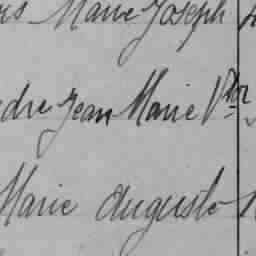 Marie Joseph
dre Jean Marie Vtor
Marie Auguste